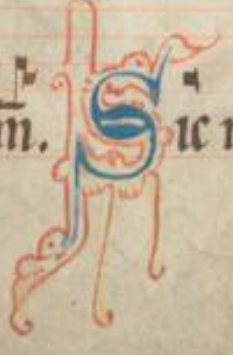 m. Sic